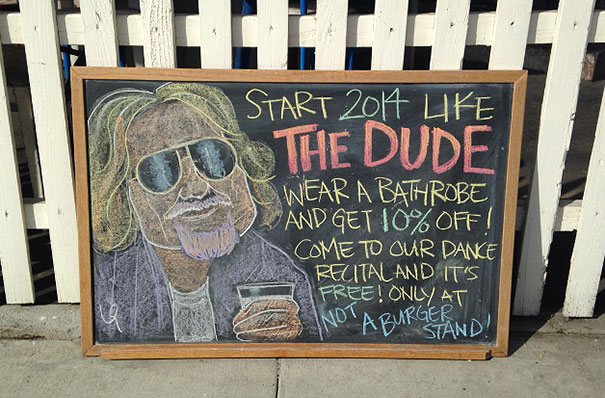 START 2014 LIKE
THE DUDE
WEAR A BATHROBE
AND GET 10% OFF!
COME TO OUR DANCE
RECITAL AND IT'S
FREE! ONLY AT
NOT A BURGER
STAND!